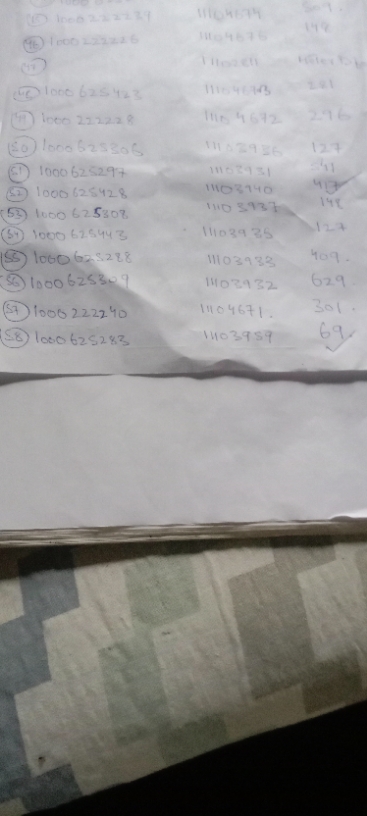 1000222239 11104674
46 1000222226 11104675 148
47 11102811
48 1000625423 11104673 221
49 1000222228 11104672 296
50 1000625306 11103936 127
51 1000625297 11103931 341
52 1000625428 11103940 417
53 1000625308 11103937 148
54 1000625443 11103935 127
55 1000625288 11103933 409.
56 1000625309 11103932 629.
57 1000222240 11104671. 301.
58 1000625283 11103959 69.